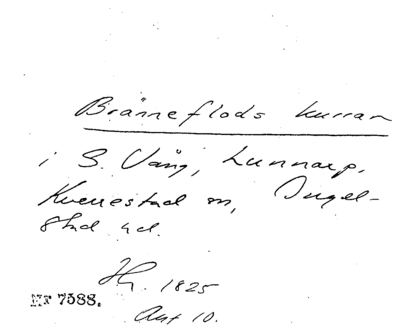 Bränneflods kurran
i S. Vång, Lunnarp,
Kverrestad sn, Ingel-
stad hd.
1825
Akt 10.
Nr 7588.